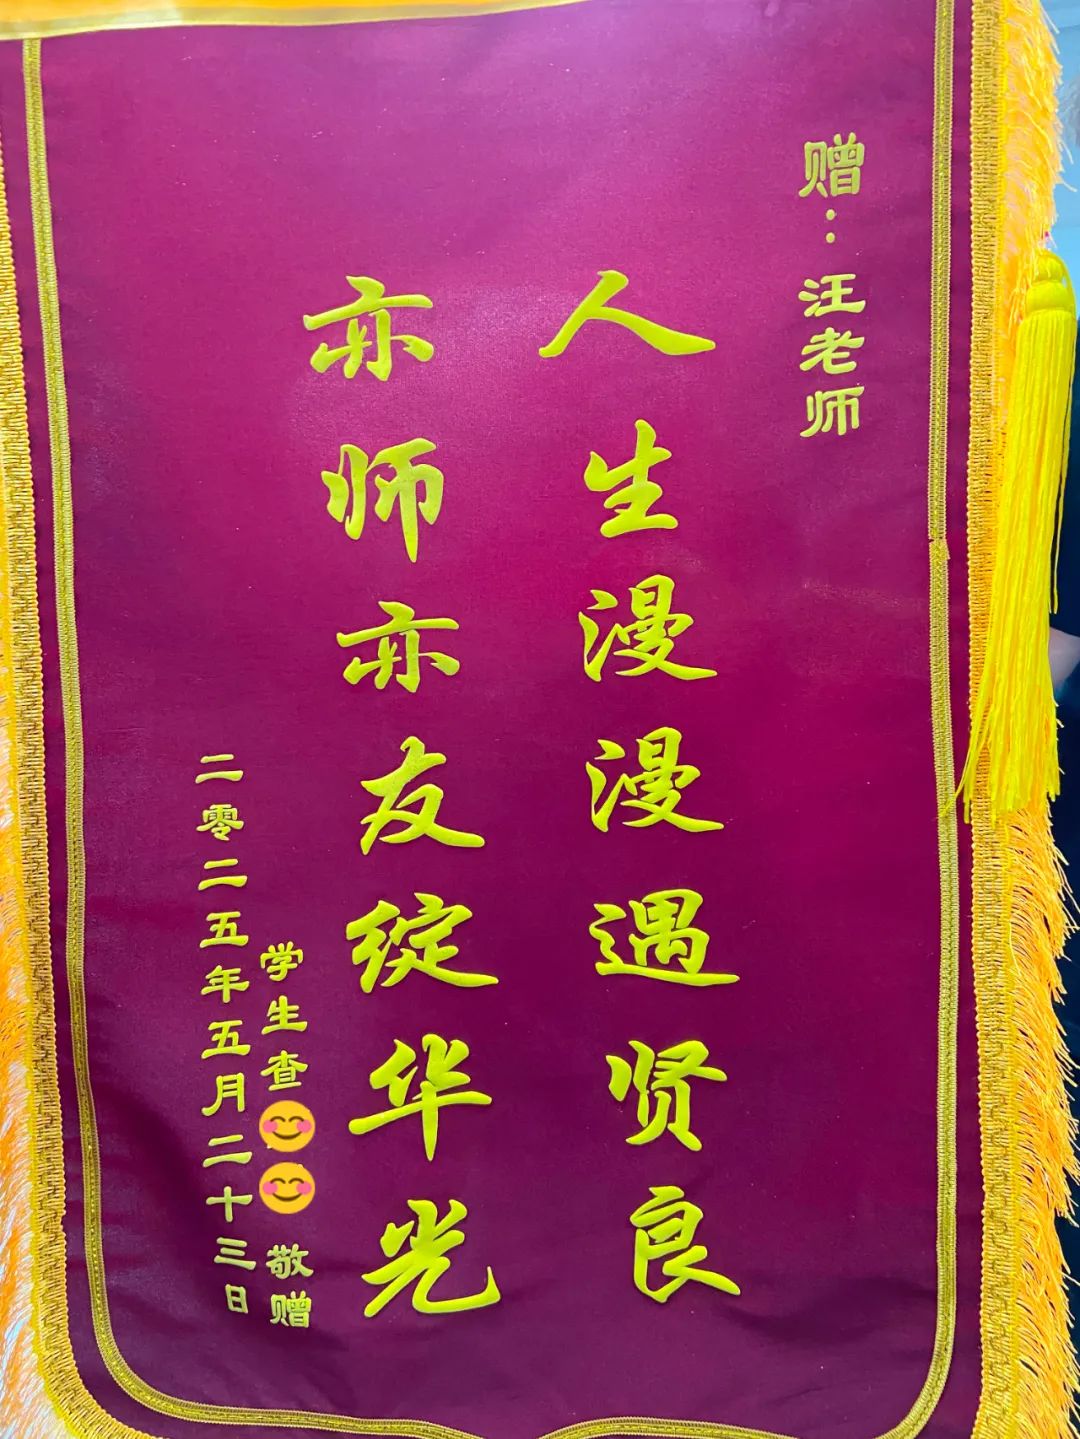 赠：汪老师
人生漫漫遇贤良
亦师亦友绽华光
学生查😊😊敬赠
二零二五年五月二十三日